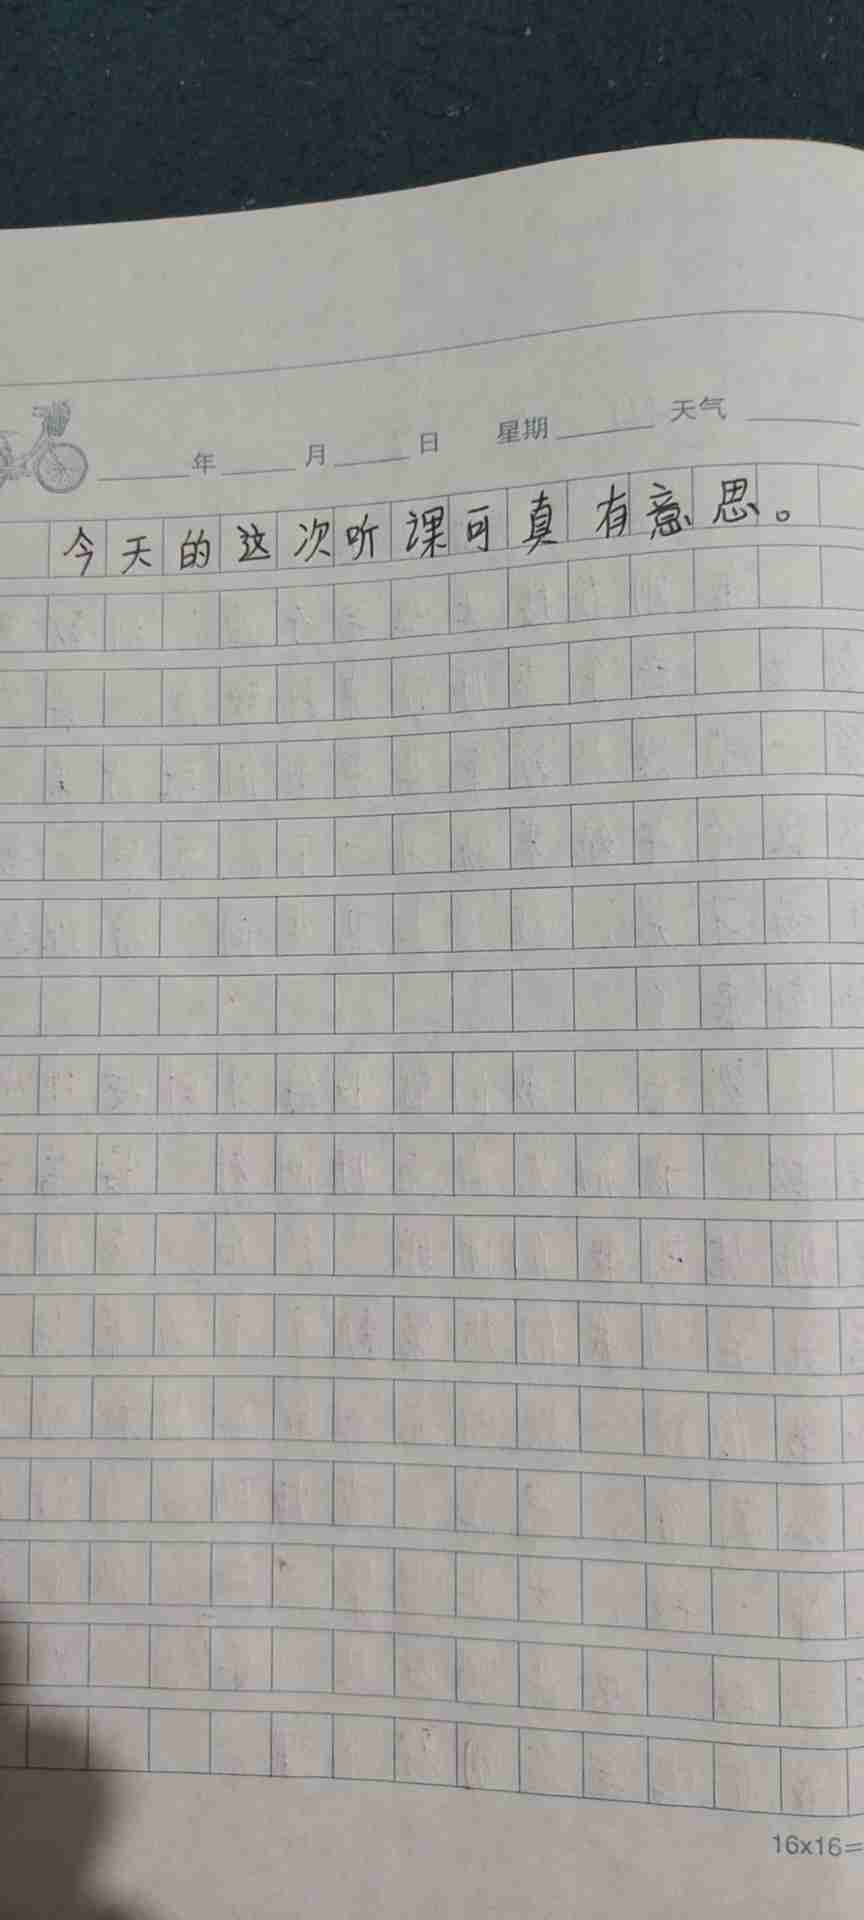 年 月 日 星期 天气
今天的这次听课可真有意思。
16x16=